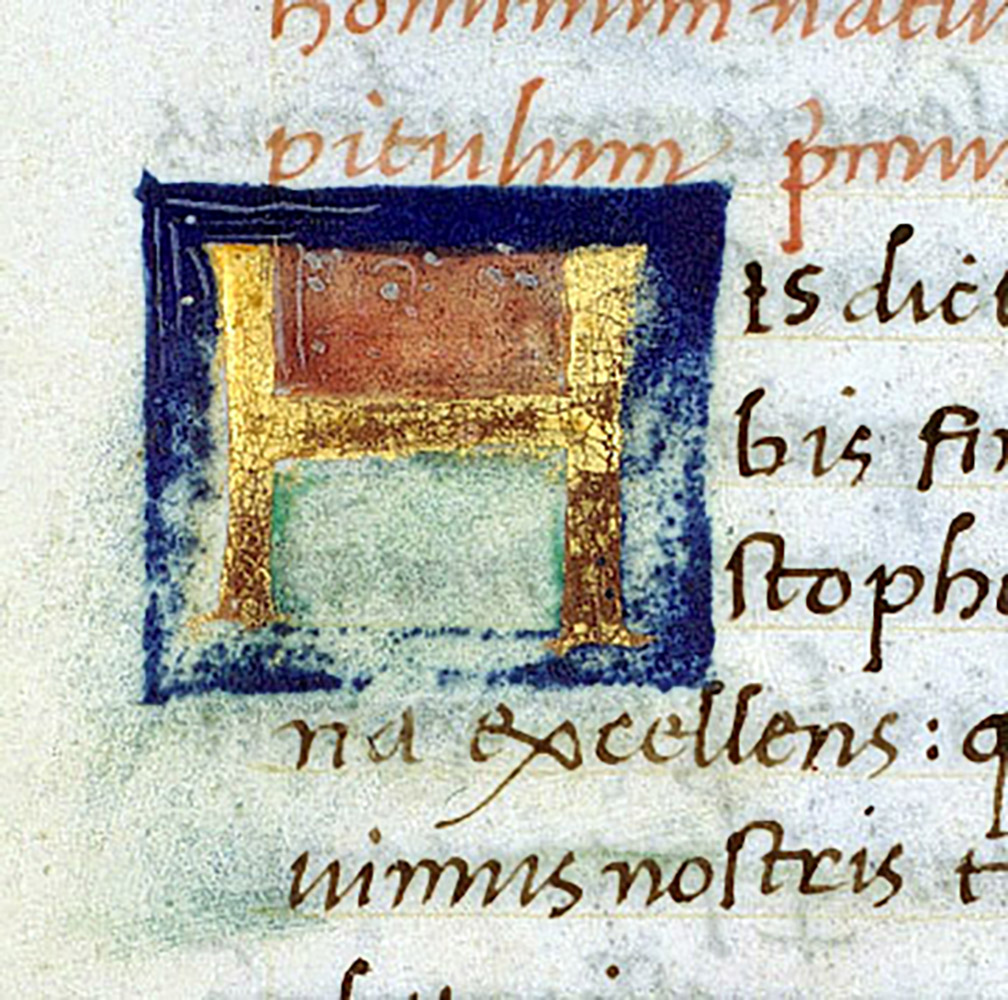 hominum natu
pitulum primu
His dict
bis fin
stoph
na excellens: q
uimus nostris t